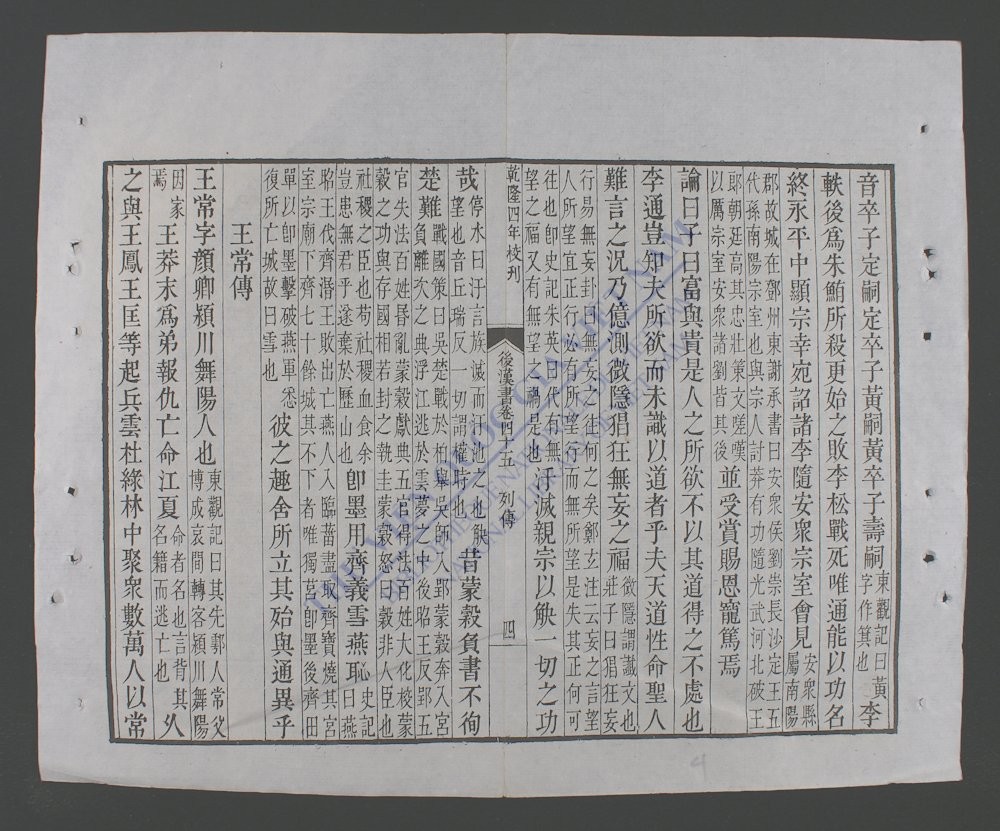 音卒子定嗣定卒子黃嗣黃卒子壽嗣東觀記曰黃字作箕也李
軼後爲朱鮪所殺更始之敗李松戰死唯通能以功名
終永平中顯宗幸宛詔諸李隨安衆宗室會見安衆縣屬南陽
郡故城在鄧州東謝承書曰安衆侯劉崇長沙定王五
代孫南陽宗室也與宗人討莽有功隨光武河北破王
郞朝廷高其忠壯策文嗟嘆以厲宗室安衆諸劉皆其後並受賞賜恩寵篤焉
論曰子曰富與貴是人之所欲不以其道得之不處也
李通豈知夫所欲而未識以道者乎夫天道性命聖人
難言之況乃億測微隱猖狂無妄之福微隱謂讖文也莊子曰猖狂妄
行易無妄卦曰無妄之往何之矣鄭玄注云妄之言望
人所望宜正行必有所望行而無所望是失其正何可
往也卽史記朱英曰代有無望之福又有無望之禍是也汙滅親宗以觖一切之功
乾隆四年校刊
後漢書卷四十五 列傳
四
哉停水曰汙言族滅而汙池之也觖望也音丘瑞反一切謂權時也昔蒙穀負書不徇
楚難戰國策曰吳楚戰於柏舉吳師入郢蒙穀奔入宮負離次之典浮江逃於雲夢之中後昭王反郢五
官失法百姓昬亂蒙穀獻典五官得法百姓大化校蒙
穀之功與存國相若封之執圭蒙穀怒曰穀非人臣也
社稷之臣也苟社稷血食余豈患無君乎遂棄於歷山也卽墨用齊義雪燕恥史記曰燕
昭王伐齊湣王敗出亡燕人入臨菑盡取齊寶燒其宮
室宗廟下齊七十餘城其不下者唯獨莒卽墨後齊田
單以卽墨擊破燕軍悉復所亡城故曰雪也彼之趣舍所立其始與通異乎
王常傳
王常字顏卿潁川舞陽人也東觀記曰其先鄠人常父博成哀間轉客潁川舞陽
因家焉王莽末爲弟報仇亡命江夏命者名也言背其名籍而逃亡也久
之與王鳳王匡等起兵雲杜綠林中聚衆數萬人以常
THƯ VIỆN QUỐC GIA VIỆT NAM
4